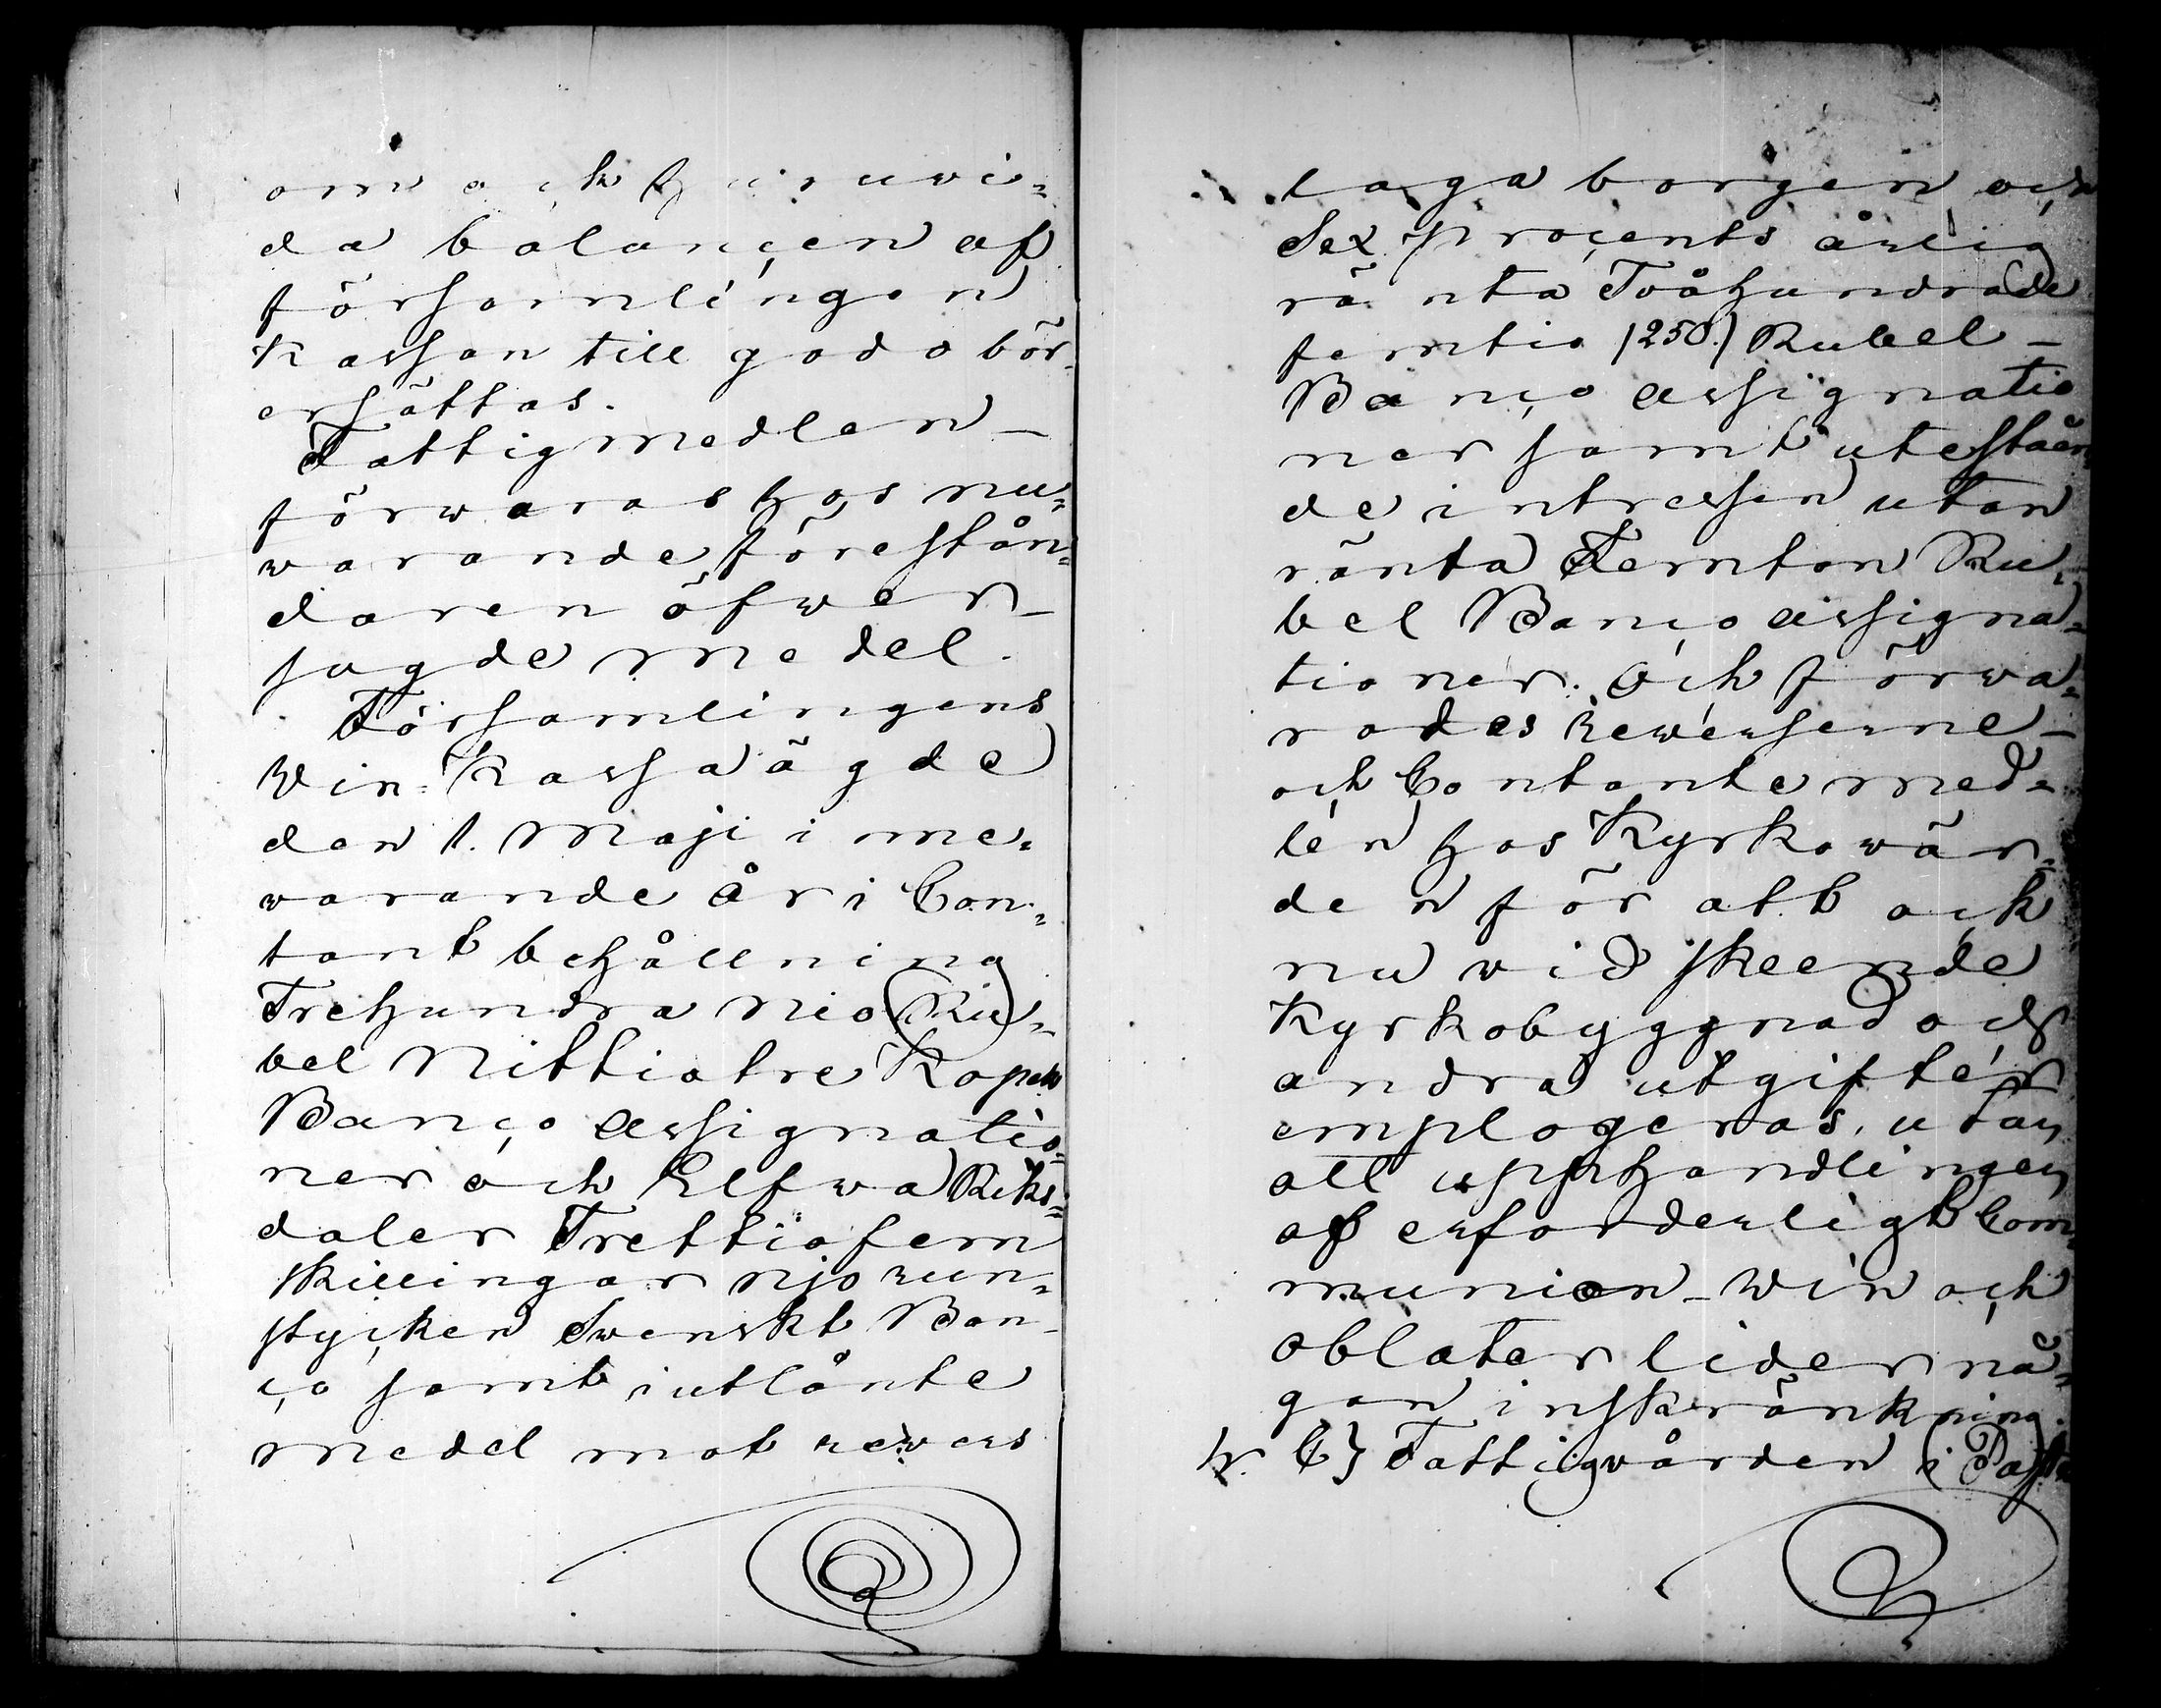 om och huruvi=
da balançen af
församlingen
Kassan till godo bör
ersättas.
Fattigmedlen –
förwaras hos nu=
warande förestån=
daren öfwer –
sagde medel.
Församlingens
Win-Kassa ägde
den 1. Maji i me=
warande år i Con=
tant behållning
Trehundra Nio Ru=
bel Nittiotre Kopek
Banço assignatio=
ner och Elfwa Riks=
daler Trettiofem
skillingar njo run=
stycken Swenskt Ban-
ço samt i utlånte
medel mot rewers
laga borgen och
Sex proçents årlig
ränta Tvåhundrade
femtio /250./ Rubel –
Banço assignatio
ner samt utestäen
de intressen utan
ränta Femton Ru=
bel Banço assigna=
tioner. Och förwa=
rades rewerserne –
och Contante med=
len hos Kyrkowär=
den för att ock
nu wid skeende
Kyrkobyggnad och
andra utgifter
employeras, utan
att upphandlingen
af erforderligt Com=
munion – Win och
oblater lider nå=
gon inskränkning.
C} Fattigvården i Past